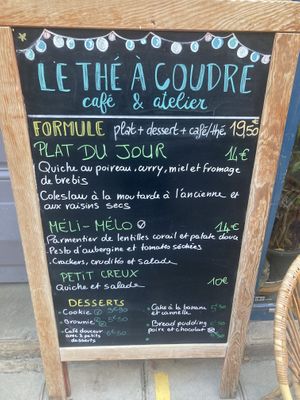 LE THÉ À COUDRE
café & atelier
FORMULE plat + dessert + café/thé 19,50€
PLAT DU JOUR 14€
Quiche au poireau, curry, miel et fromage
de brebis
Coleslaw à la moutarde à l'ancienne et
aux raisins secs
MÉLI-MÉLO 14€
Parmentier de lentilles corail et patate douce
Pesto d'aubergine et tomates séchées
Crackers, crudités et salade
PETIT CREUX 10€
Quiche et salade
DESSERTS
• Cookie
• Brownie
• Café douceur
avec 3 petits
desserts
• Cake à la banane
et cannelle
• Bread pudding
poire et chocolat